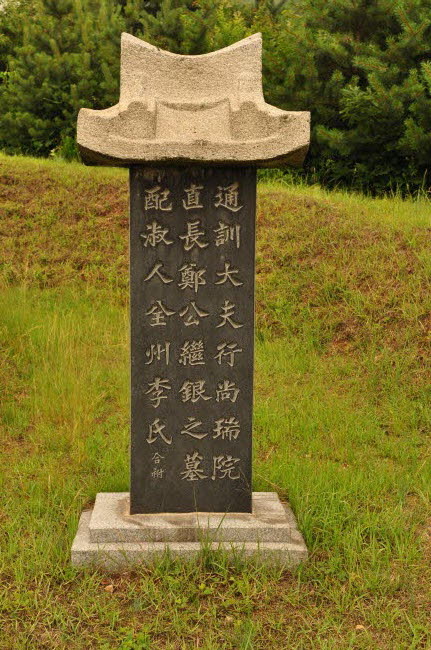 通訓大夫行尚瑞院
直長鄭公繼銀之墓
配淑人全州李氏 合祔